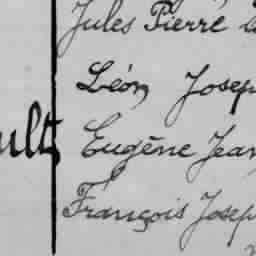 Jules Pierre
Léon Josep
ult Eugène Jean
François Josep